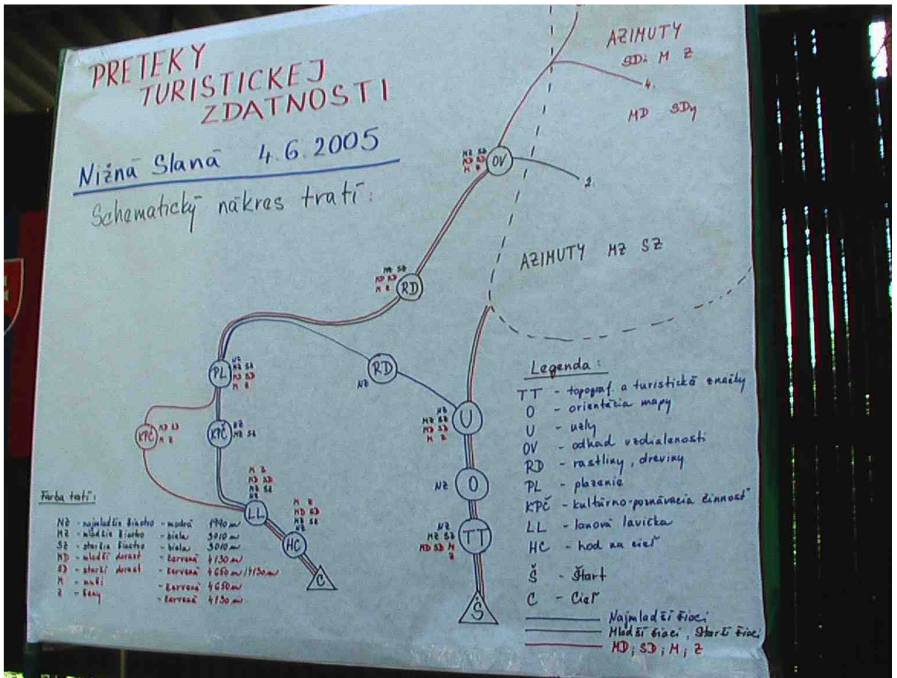 PRETEKY
TURISTICKEJ
ZDATNOSTI
Nižná Slaná 4.6.2005
Schematický nákres tratí:
AZIMUTY
SDi M Ž
4.
MD SDy
MŽ SŽ
MD SD
M Ž
OV
2.
AZIMUTY MŽ SŽ
MŽ SŽ
MD SD
M Ž
RD
NŽ
MŽ SŽ
MD SD
M Ž
PL
RD
NŽ
KPČ
MD SD
M Ž
KPČ
NŽ
MŽ SŽ
NŽ
MŽ SŽ
MD SD
M Ž
U
NŽ
O
NŽ
MŽ SŽ
MD SD M
Ž
TT
Š
M Ž
MD SD
MŽ SŽ
NŽ
LL
M Ž
MD SD
MŽ SŽ
NŽ
HC
C
Legenda:
TT - topograf. a turistické značky
O - orientácia mapy
U - uzly
OV - odhad vzdialenosti
RD - rastliny, dreviny
PL - plazenie
KPČ - kultúrno-poznávacia činnosť
LL - lanová lavička
HC - hod na cieľ
Š - Štart
C - Cieľ
Najmladší žiaci
Mladší žiaci, Starší žiaci
MD, SD, M, Ž
Farba tratí:
NŽ - najmladšie žiactvo - modrá 1940 m
MŽ - mladšie žiactvo - biela 3010 m
SŽ - staršie žiactvo - biela 3010 m
MD - mladší dorast - červená 4130 m
SD - starší dorast - červená 4650 m/4130 m
M - muži - červená 4650 m
Ž - ženy - červená 4130 m